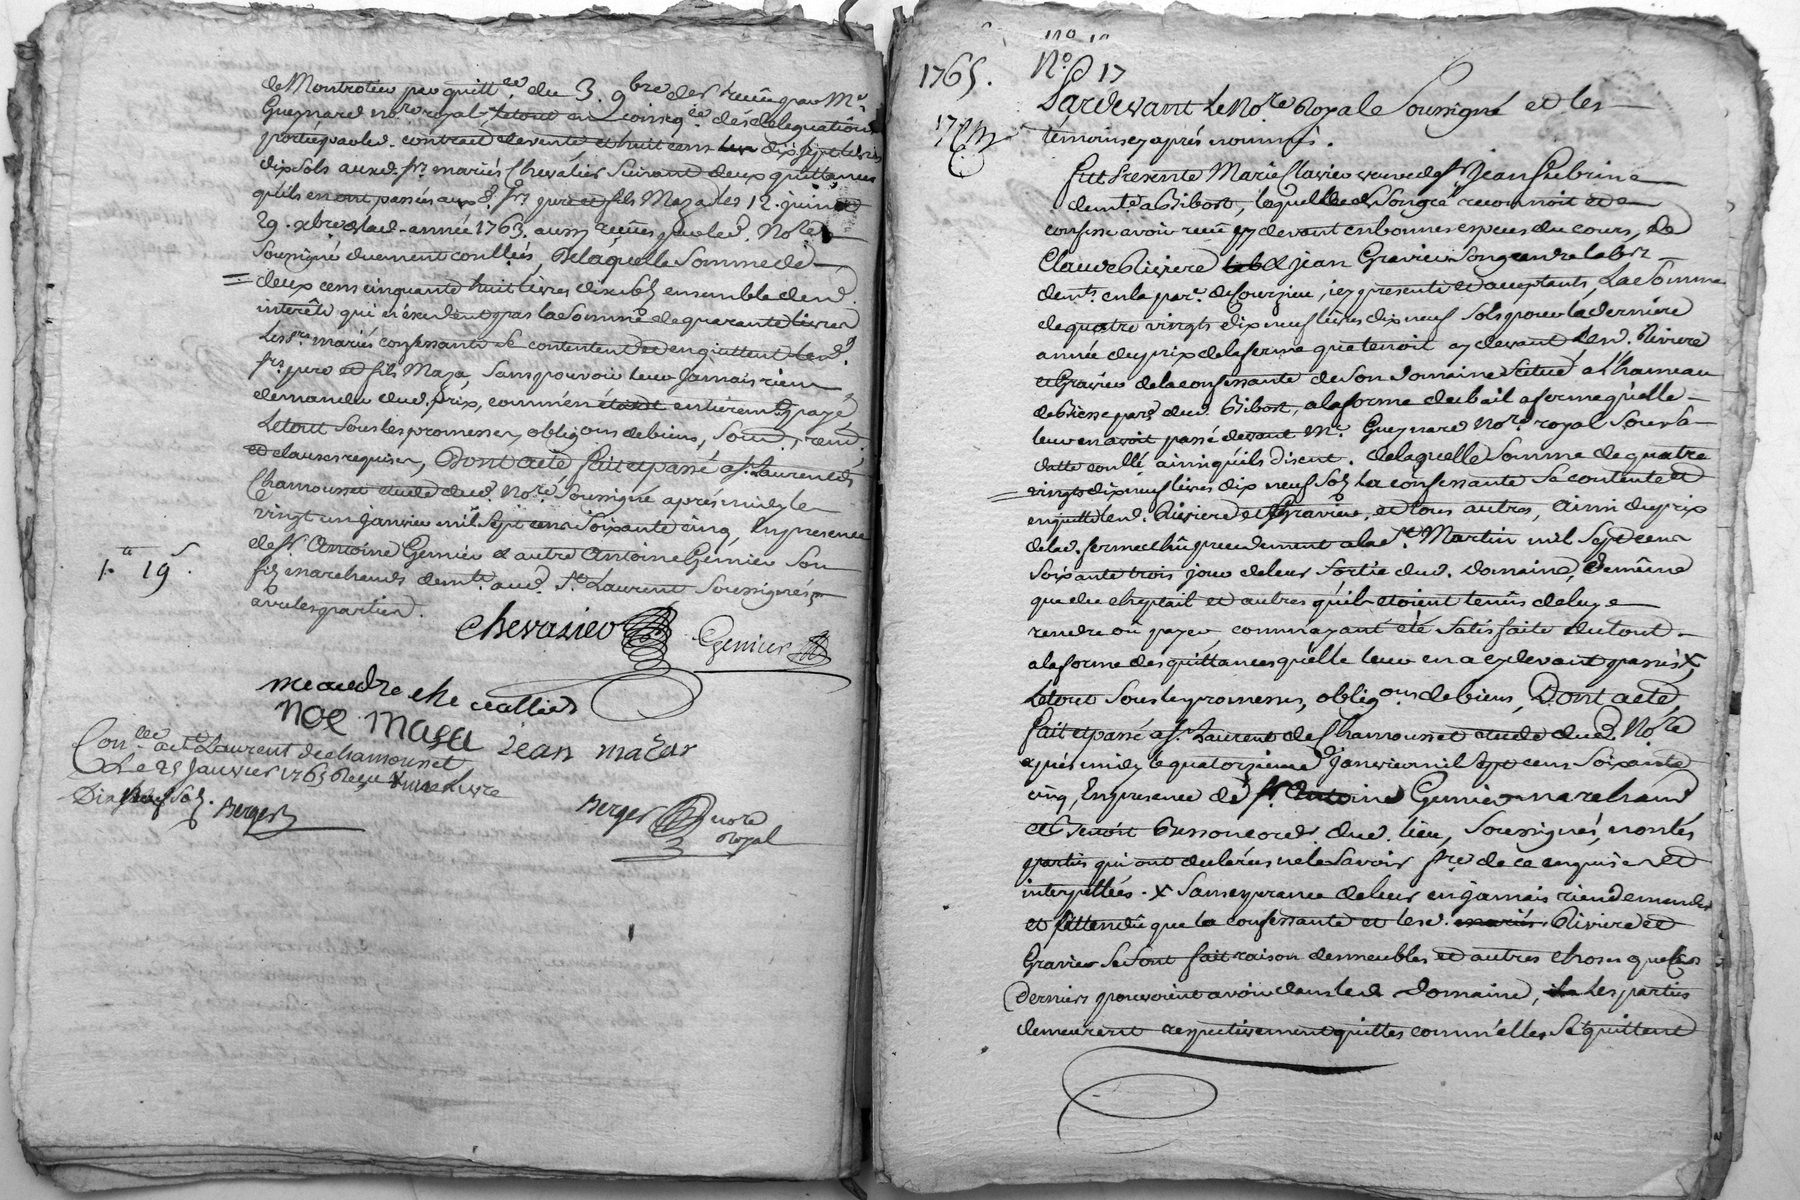 de Montrotier par quitt.ce du 3. 9bre der.r reçüe par M.e
Gueynard no.re royal, Letout en conséq.ce des délégations
portées aud. contrat de vente et huit cens dix sept livres
dix sols auxd. srs mariés Chevalier Suivant deux quittances
qu'ils en ont passées auxd. Srs pere et fils Maza les 12. juin et
29. xbre de lad. année 1763. aussy reçües par led. No.re
Soussigné duement conllées, De laquelle Somme de
deux cens cinquante huit livres dix sols ensemble des
interêts qui n'exendent pas la Somme de quarante livres
Les srs mariés confessants se contentent et en quittent lesd.
srs pere et fils Maza, Sans pouvoir leur jamais rien
demander dud. prix, comm'en étant entierem.t payé
Letout Sous les promesses, oblig.ons de biens, Soum., renon.
et clauses requises, Dont acte fait et passé a St. Laurent de
Chamousset etude dud. No.re Soussigné après midy le
vingt un janvier mil Sept cens Soixante cinq, En presence
de Sr. Antoine Genier & autre Antoine Genier Son
fils marchands dem.ts aud. St. Laurent Soussignés
avec les parties.
1.# 19 s.
chevalier Genier
meaudre chevallier
noe masa jean mazar
Con.llé a St Laurent de chamousset
Le 25 Janvier 1765 Reçu une Livre
Dix Neuf Sols. Berger
Berger no.re
royal
1765.
N.o 17
Pardevant Le No.re Royale Soussigné et les
témoins cy après nommés.
fut Presente Marie Clavier veuve de Sr. Jean Subrin
dem.te a Bibost, laquelle de Songré reconnoit et
confesse avoir reçû cy devant en bonnes especes du cours, de
Claude Riviere & jean Gravier Son gendre labr.s
dem.ts en la par.se de Courzieu, icy presents et acceptants, La Somme
de quatre vingts dix neuf livres dix neuf Sols pour la derniere
année du prix de la ferme que tenoit cy devant Lesd. Riviere
et Gravier de la confessante de Son Domaine Scitué a l'hameau
de par.se dud. Bibost, a la forme du bail a ferme qu'elle
leur en avoit passé devant M.e Gueynard No.re royal Sous la
datte conllé ainsi qu'ils disent. de laquelle Somme de quatre
vingts dix neuf livres dix neuf Sols La confessante Se contente et
en quitte lesd. Riviere et Gravier, et tous autres, ainsi du prix
de lad. ferme a la St. Martin mil Sept cens
Soixante trois jour de leur Sortie dud. Domaine, De même
que du cheptail et autres qu'ils etoient tenus de luy
rendre ou payer, comm'ayant été Satisfaite du tout
a la forme des quittances qu'elle leur en a cy devant passés X
Letout Sous les promesses, oblig.ons de biens, Dont acte,
fait et passé a St. Laurent de Chamousset etude dud. No.re
après midy le quatorzieme Janvier mil Sept cens Soixante
cinq, En presence de Sr. Antoine Genier marchand
et Benoit Bessoncordr dud. lieu, Soussignés, non les
parties qui ont déclarées ne le Savoir faire de ce enquises et
interpellées. X Sans esperance de leur en jamais rien demander
et Attendû que la confessante et lesd. Riviere et
Gravier Se Sont fait raison des meubles et autres choses que les
Derniers pouvoient avoir dans led. Domaine, Les parties
demeurent respectivement quittes comm'elles Se quittent